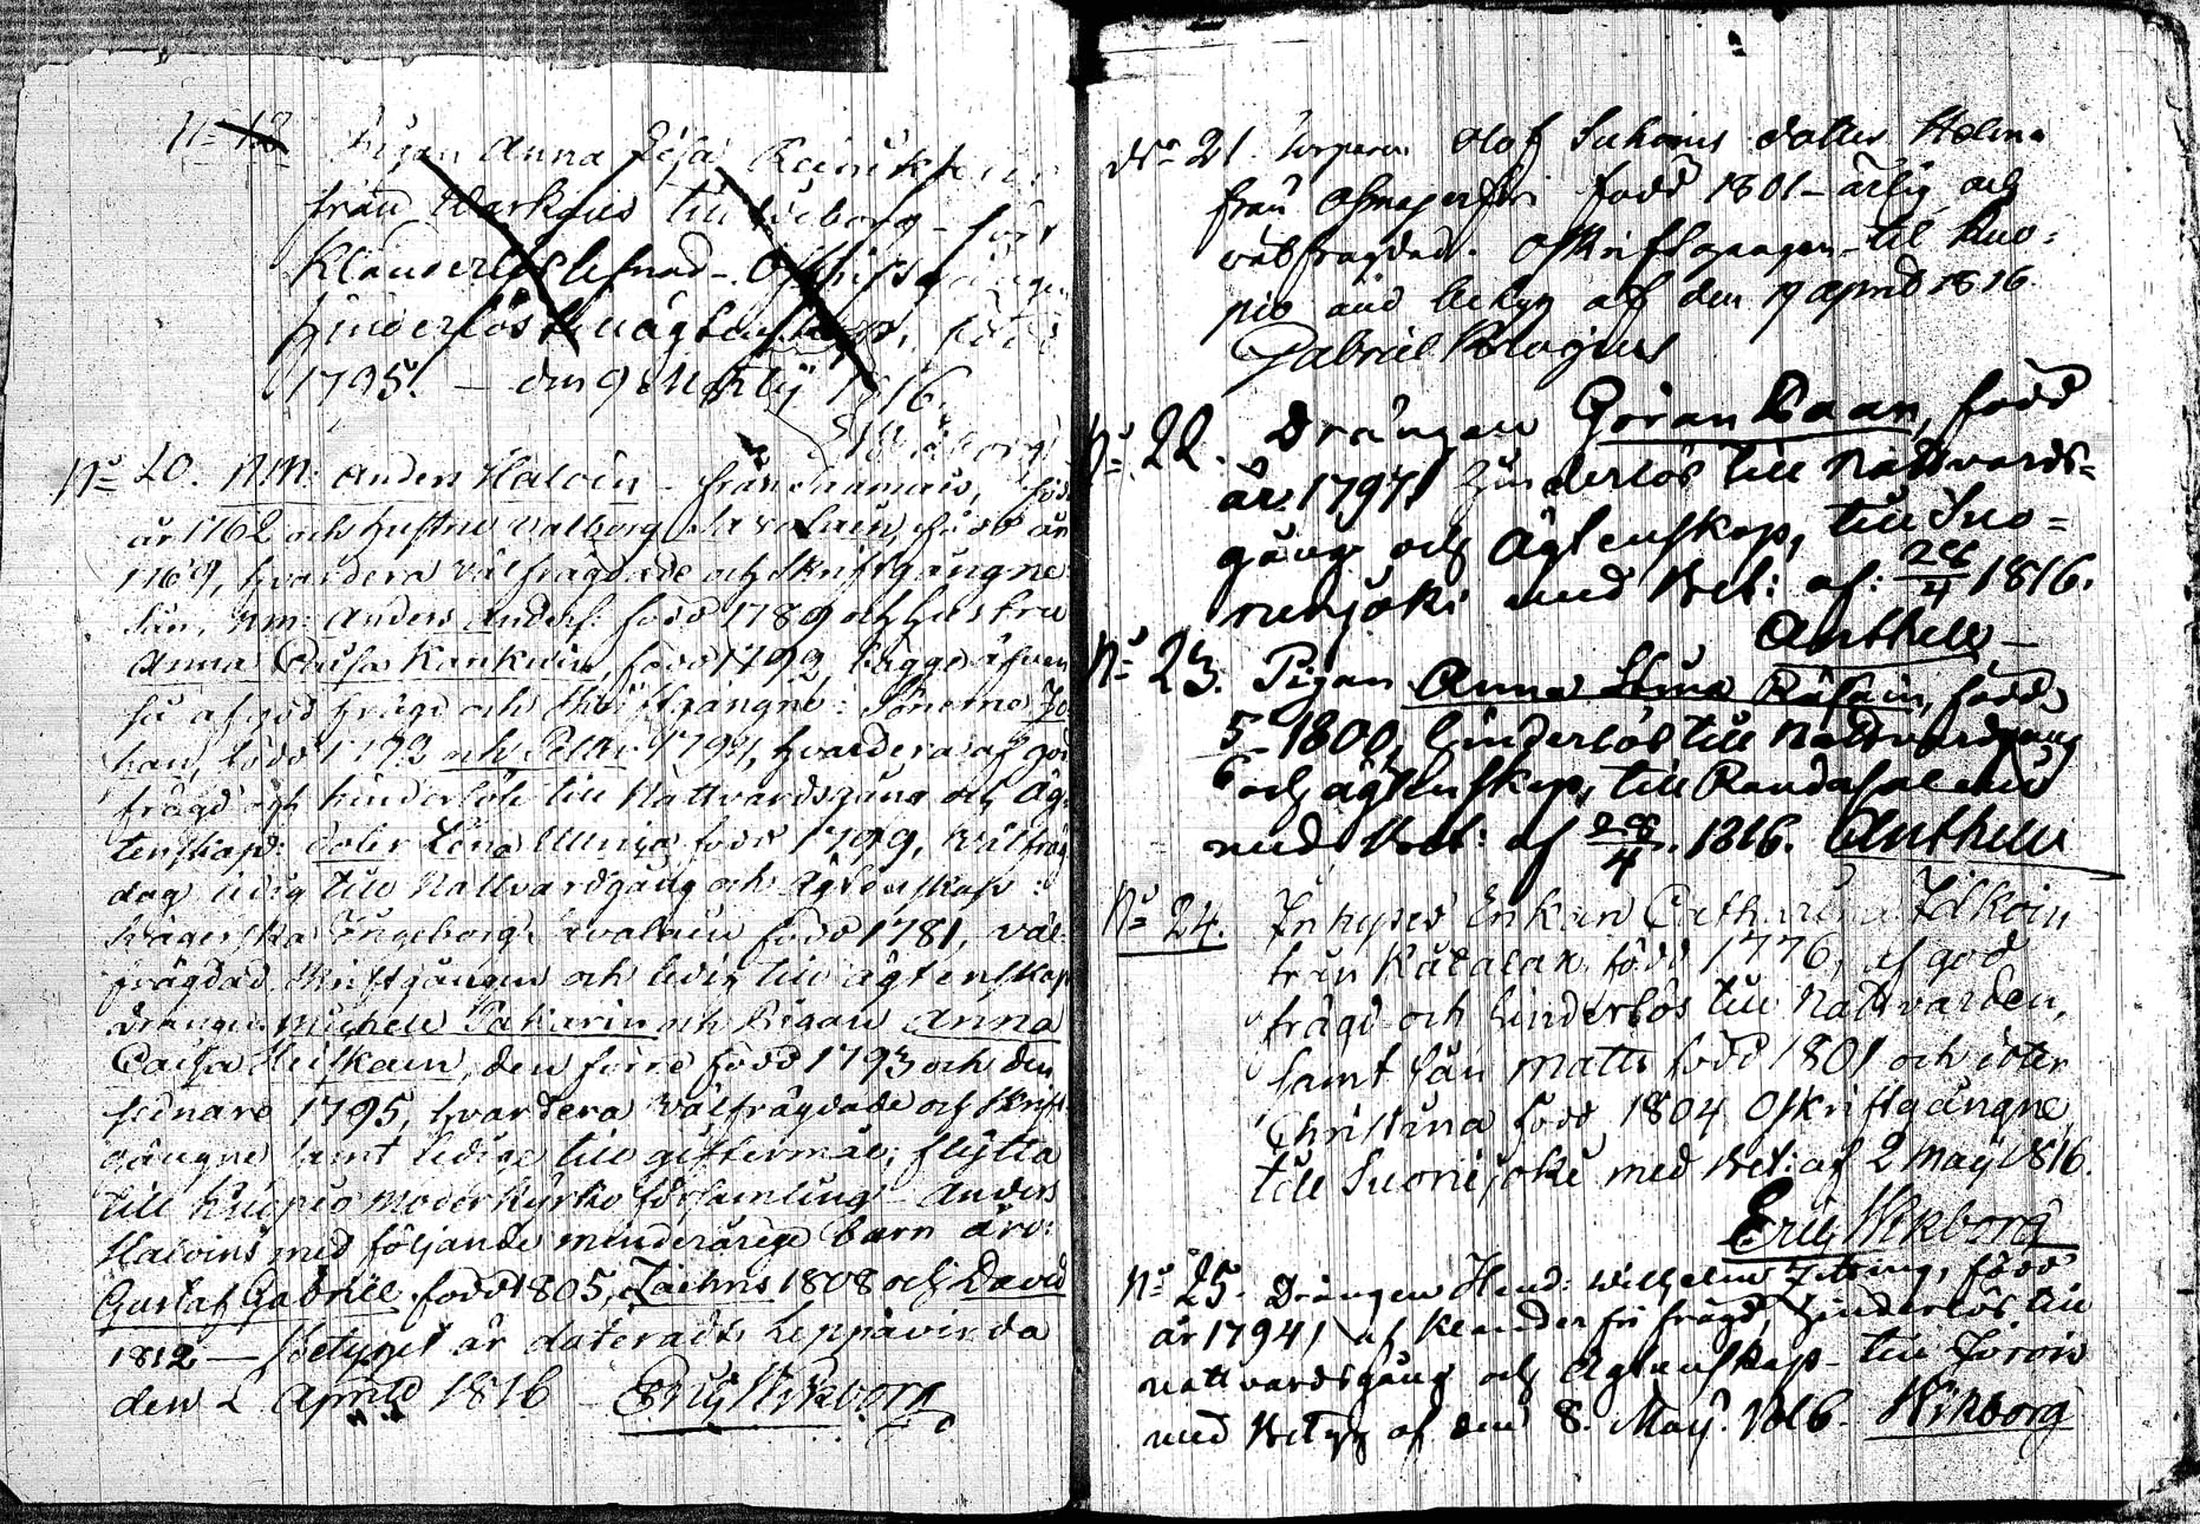 N:o 18
Pigan Anna Lisa Reinikain
från Warkaus till
Klanderlös lefnad -
hinderlös till ägtenskap, född
1795. - den 9 Martii 1816.
Wikborg
N:o 20. NM: Anders Halvin - från Saamais, född
år 1762 och hustru Valborg Savolain, född år
1769, hvardera välfrägdade och Skriftgångne
Son, NM: Anders Anders: född 1789 och hustru
Anna Caisa Kankuin, född 1792, bägge äfven
så af god frägd och Skriftgångne: Sönerne Jo
han, född 1792 och Petter 1794, hvardera af god
frägd och hinderlöse till Nattvardsgång och äg
tenskap: doter Lena Ulrica född 1799, Välfräg
dad ledig till Nattvardgång och ägtenskap:
Svägerska Ingeborg Savolain född 1781, väl
frägdad, Skriftgången och ledig till ägtenskap
drängen Michell Pakarin och Pigan Anna
Caisa Heiskain, den förre född 1793 och den
senare 1795, hvardera välfrägdade och Skrift
gångne samt ledige till giftermål; flytta
till Kuopio Moderkyrko församling - Anders
Halvins med följande minderårige barn äro:
Gustaf Gabriel född 1805, Zachris 1808 och David
1812 - Betyget är dateradt Leppävirda
den 2 Aprill 1816 - Eric Wikborg
N:o 21. Torparen Olof Suhoins dotter Helena
från född 1801 - ärlig och
välfrägdad. Oskriftgången - til Kuo:
pio med Betyg af den 19 April 1816.
Gabriel Krogius
N:o 22. Drängen Göran Kaan, född
år 1797, hinderlös till Nattvards=
gång och Ägtenskap, till Suo=
nenjoki med Bet: af: 28/4 1816.
Anthell -
N:o 23. Pigan Anna Stina Räsain, född
5/6 1800, hinderlös till Nattvardsgång
och ägtenskap, till Randasalmi
med Bet: af 28/4. 1816. Anthell
N:o 24. Inhyses Enkan Catharina Ilkoin
från född 1776, af god
frägd och hinderlös till Nattvarden,
samt Son Matts född 1801 och doter
Christina född 1804 Oskriftgångne,
till Suonejoki med Bet: af 2 Maij 1816.
Eric Wikborg
N:o 25. Drängen Hend: Wilhelm född
år 1794, af klanderfri frägd, hinderlös till
nattvardsgång och Ägtenskap - till Jorois
med Betyg af den 8. Maij. 1816. Wikborg